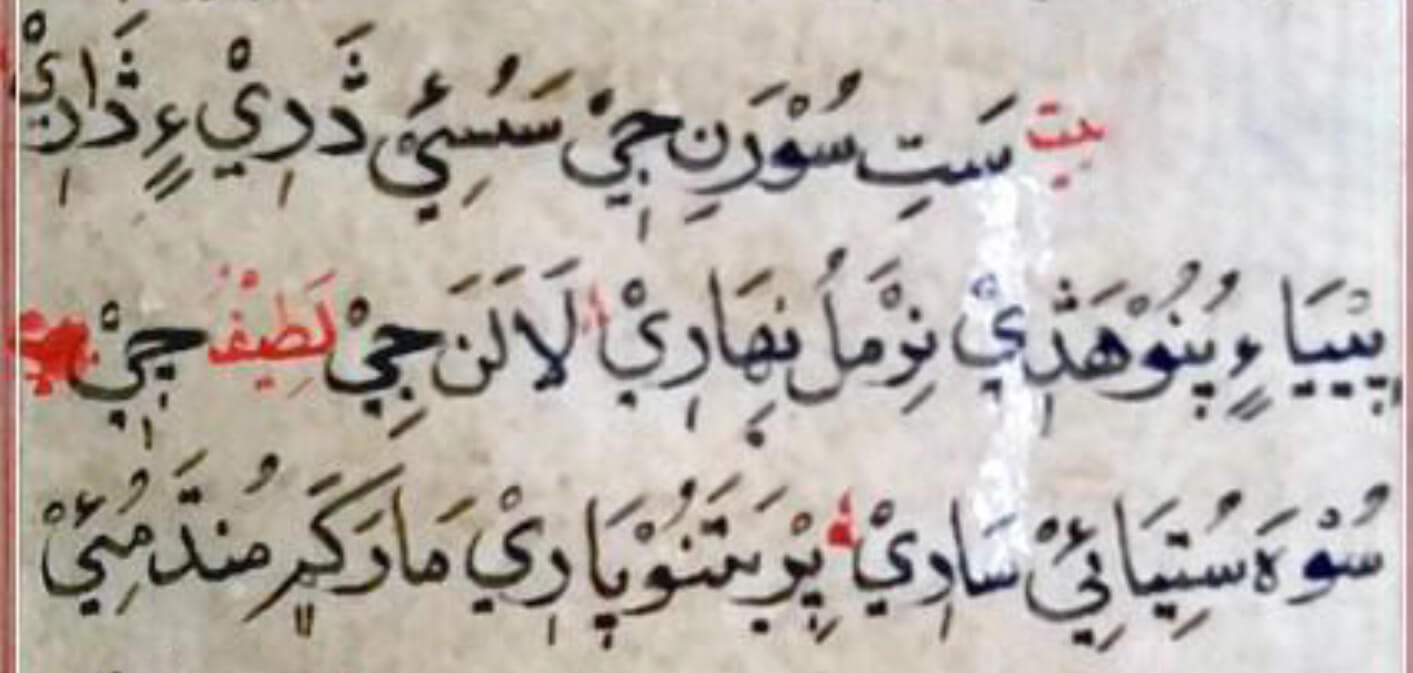 بيت سَتِ سُوْرَنِ جِيْ سَسُئِيْ ذَّرِيْ ءٍ ذَّارِيْ
پيَيَا ءٍ پُنُوْهَذِيْ نِرْمَلُ نِهَارِيْ لَالَنَ جِيْ لَطِيْفُ جِيْ
سُوْهَ سُتِيَائِيْ سَارِيْ پِرِيَتَنُوْ پَارِيْ مَارَ کَرِ مُندَّ مُئِيْ